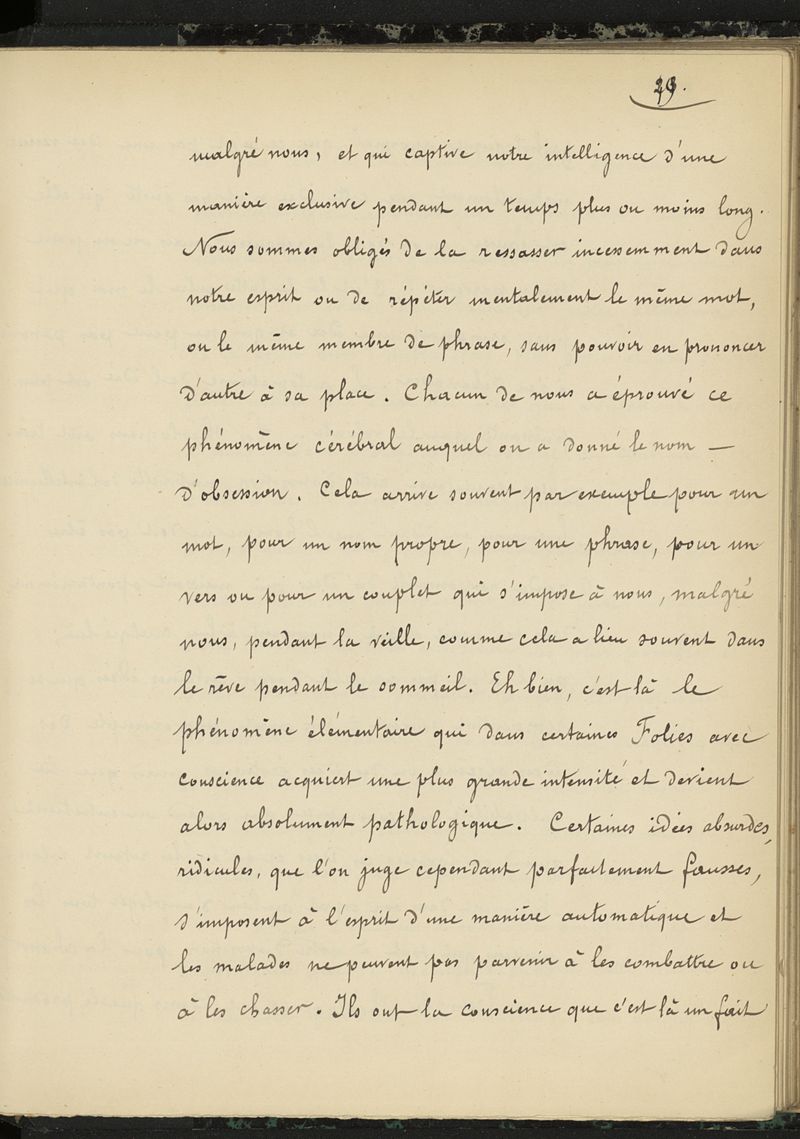 29.
malgré nous, et qui captive notre intelligence d'une
manière exclusive pendant un temps plus ou moins long.
Nous sommes obligés de la ressasser incessemment dans
notre esprit ou de répéter mentalement le même mot,
ou le même membre de phrase, sans pouvoir en prononcer
d'autre à sa place. Chacun de nous a éprouvé ce
phénomène cérébral auquel on a donné le nom —
d'obsession. Cela arrive souvent par exemple pour un
mot, pour un nom propre, pour une phrase, pour un
vers ou pour un couplet qui s'impose à nous, malgré
nous, pendant la veille, comme cela a lieu souvent dans
le rêve pendant le sommeil. Eh bien, c'est là le
phénomène élémentaire qui dans certaines Folies avec
conscience acquiert une plus grande intensité et devient
alors absolument pathologique. Certaines idées absurdes,
ridicules, que l'on juge cependant parfaitement fausses,
s'imposent à l'esprit d'une manière automatique et
les malades ne peuvent pas parvenir à les combattre ou
à les chasser. Ils ont la conscience que c'est là un fait